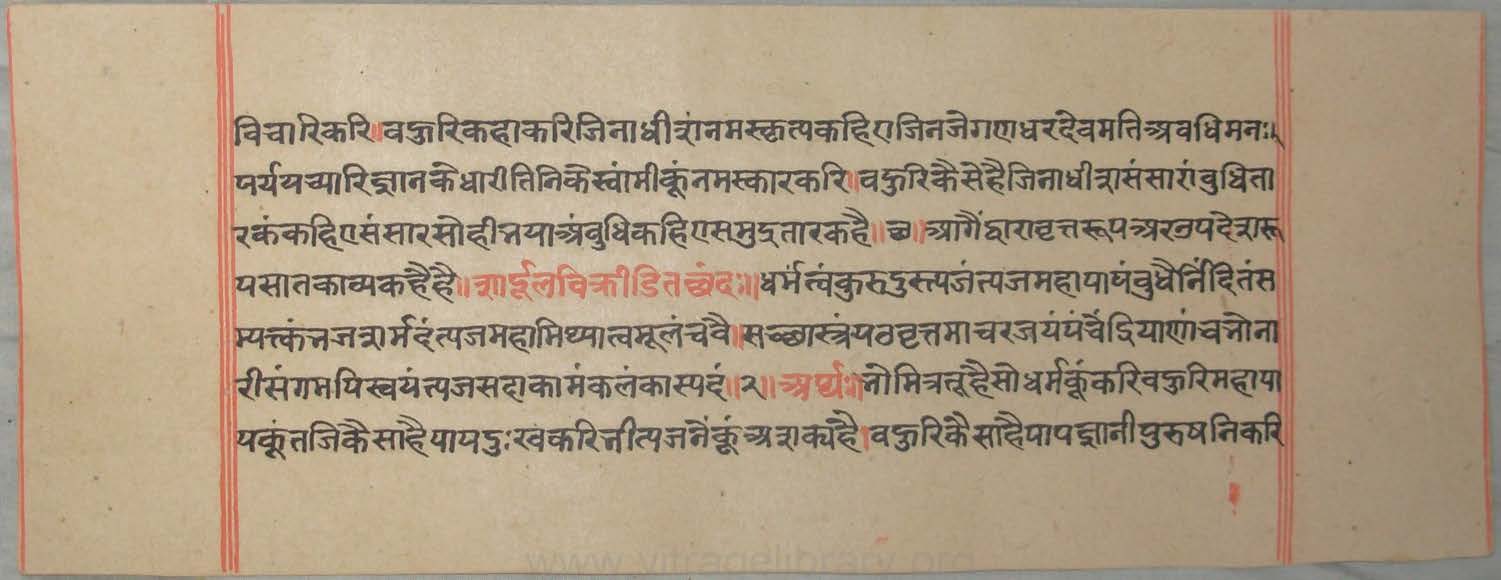 विचारिकरि॥वहुरिकहाकरिजिनाधीशंनमस्कृत्यकहिएजिनजेगणधरदेवमतिअवधिमनः
पर्ययच्यारिज्ञानकेधारीतिनिकैस्वांमीकूंनमस्कारकरि॥वहुरिकैसेहैजिनाधीशसंसारांवुधिता
रकंकहिएसंसारसोहीभयाअंवुधिकहिएसमुद्रतारकहै॥छ॥आगैंद्वारावृत्तरूपअरउपदेशरू
पसातकाव्यकहैंहै॥शार्दूलविक्रीडितछंदः॥धर्मंत्वंकुरुदुस्त्यजंत्यजमहापापंवुधैर्निंदितंस
म्यत्क्तंभजशर्मदंत्यजमहामिथ्यात्वमूलंचवै॥सच्छास्त्रंपठवृत्तमाचरजयंपंचेंद्रियाणांचभोना
रीसंगमपिस्वयंत्यजसदाकामंकलंकास्पदं॥२॥अर्थः॥भोमित्रतूहैसोधर्मकूंकरिवहुरिमहापा
पकूंतजिकैसाहैपापदुःखकरिभीत्यजनैंकूंअशक्यहै।वहुरिकैसाहैपापज्ञानीपुरुषनिकरि
www.vitragelibrary.org